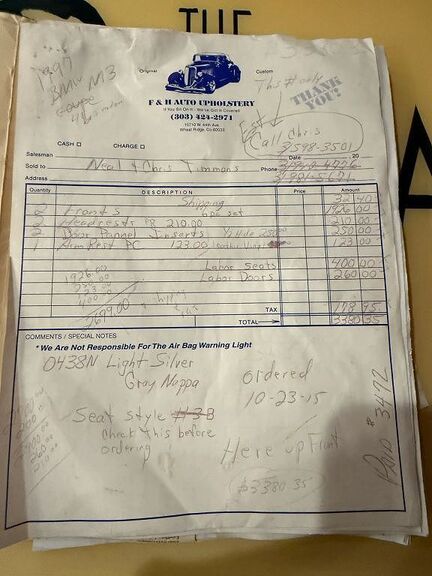 THE
1997
BMW M3
Coupe
Original
Custom
This # only
THANK
YOU!
F & H AUTO UPHOLSTERY
If You Sit On It - We've Got It Covered!
(303) 424-2971
10210 W. 44th Ave.
Wheat Ridge, Co 80033
Call Chris
598-3501
CASH CHARGE
Salesman Date 20
Sold to Neal & Chris Timmons Phone
Address
Quantity DESCRIPTION Price Amount
Shipping 32 40
2 Fronts 1926 00
2 Headrests 210.00 210 00
2 Door Pannel Inserts 250 00
1 Arm Rest PC 123.00 123 00
Labor Seats 400 00
Labor Doors 260 00
1926.00
TAX 178 95
TOTAL 3380 35
COMMENTS / SPECIAL NOTES
* We Are Not Responsible For The Air Bag Warning Light
0438N Light Silver
Gray Nappa
Ordered
10-23-15
Seat Style #38
check this before
ordering
Here up Front
$3380.35
Paid $3492